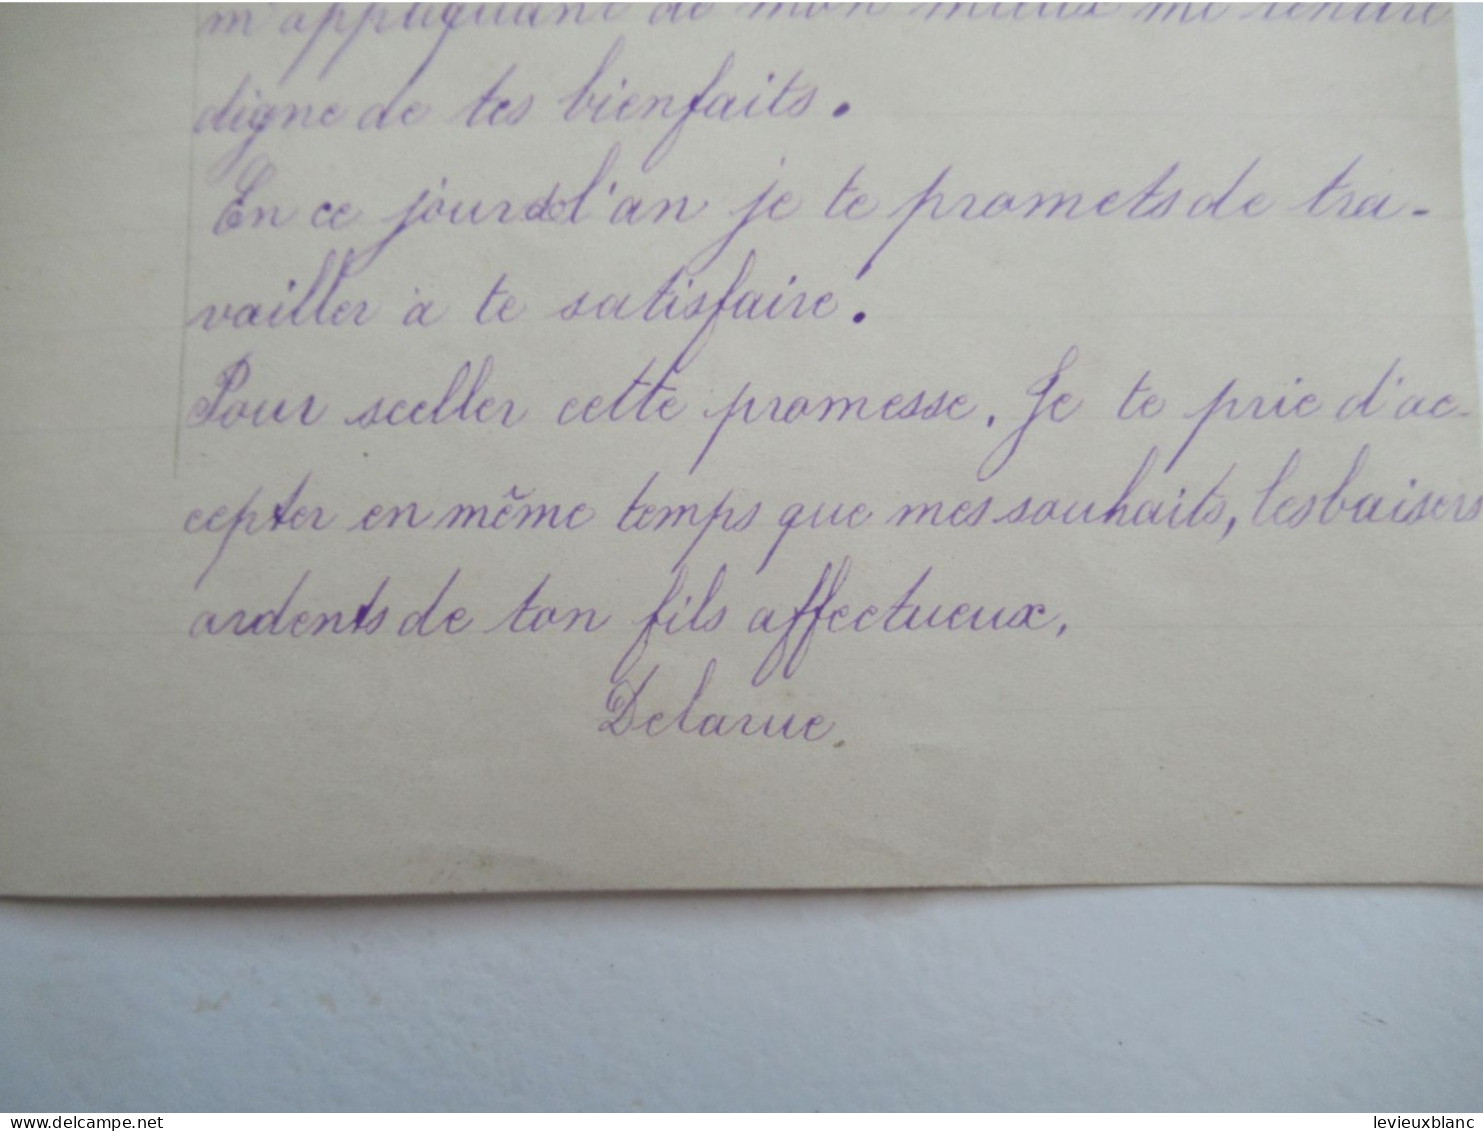 m'appliquant de mon mieux me rendre
digne de tes bienfaits.
En ce jour de l'an je te promets de tra-
vailler à te satisfaire.
Pour sceller cette promesse. Je te prie d'ac-
cepter en même temps que mes souhaits, les baisers
ardents de ton fils affectueux.
Delarue.
levieuxblanc